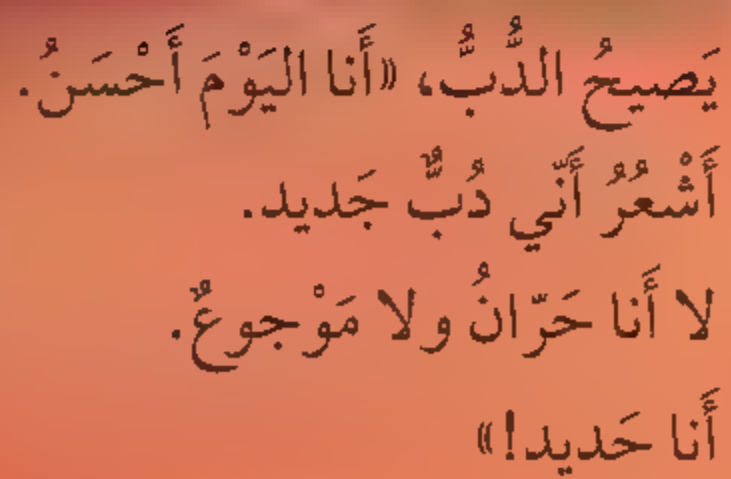 يَصيحُ الدُّبُّ، «أَنا اليَوْمَ أَحْسَنُ.
أَشْعُرُ أَنّي دُبٌّ جَديد.
لا أَنا حَرّانُ ولا مَوْجوعٌ.
أَنا حَديد!»